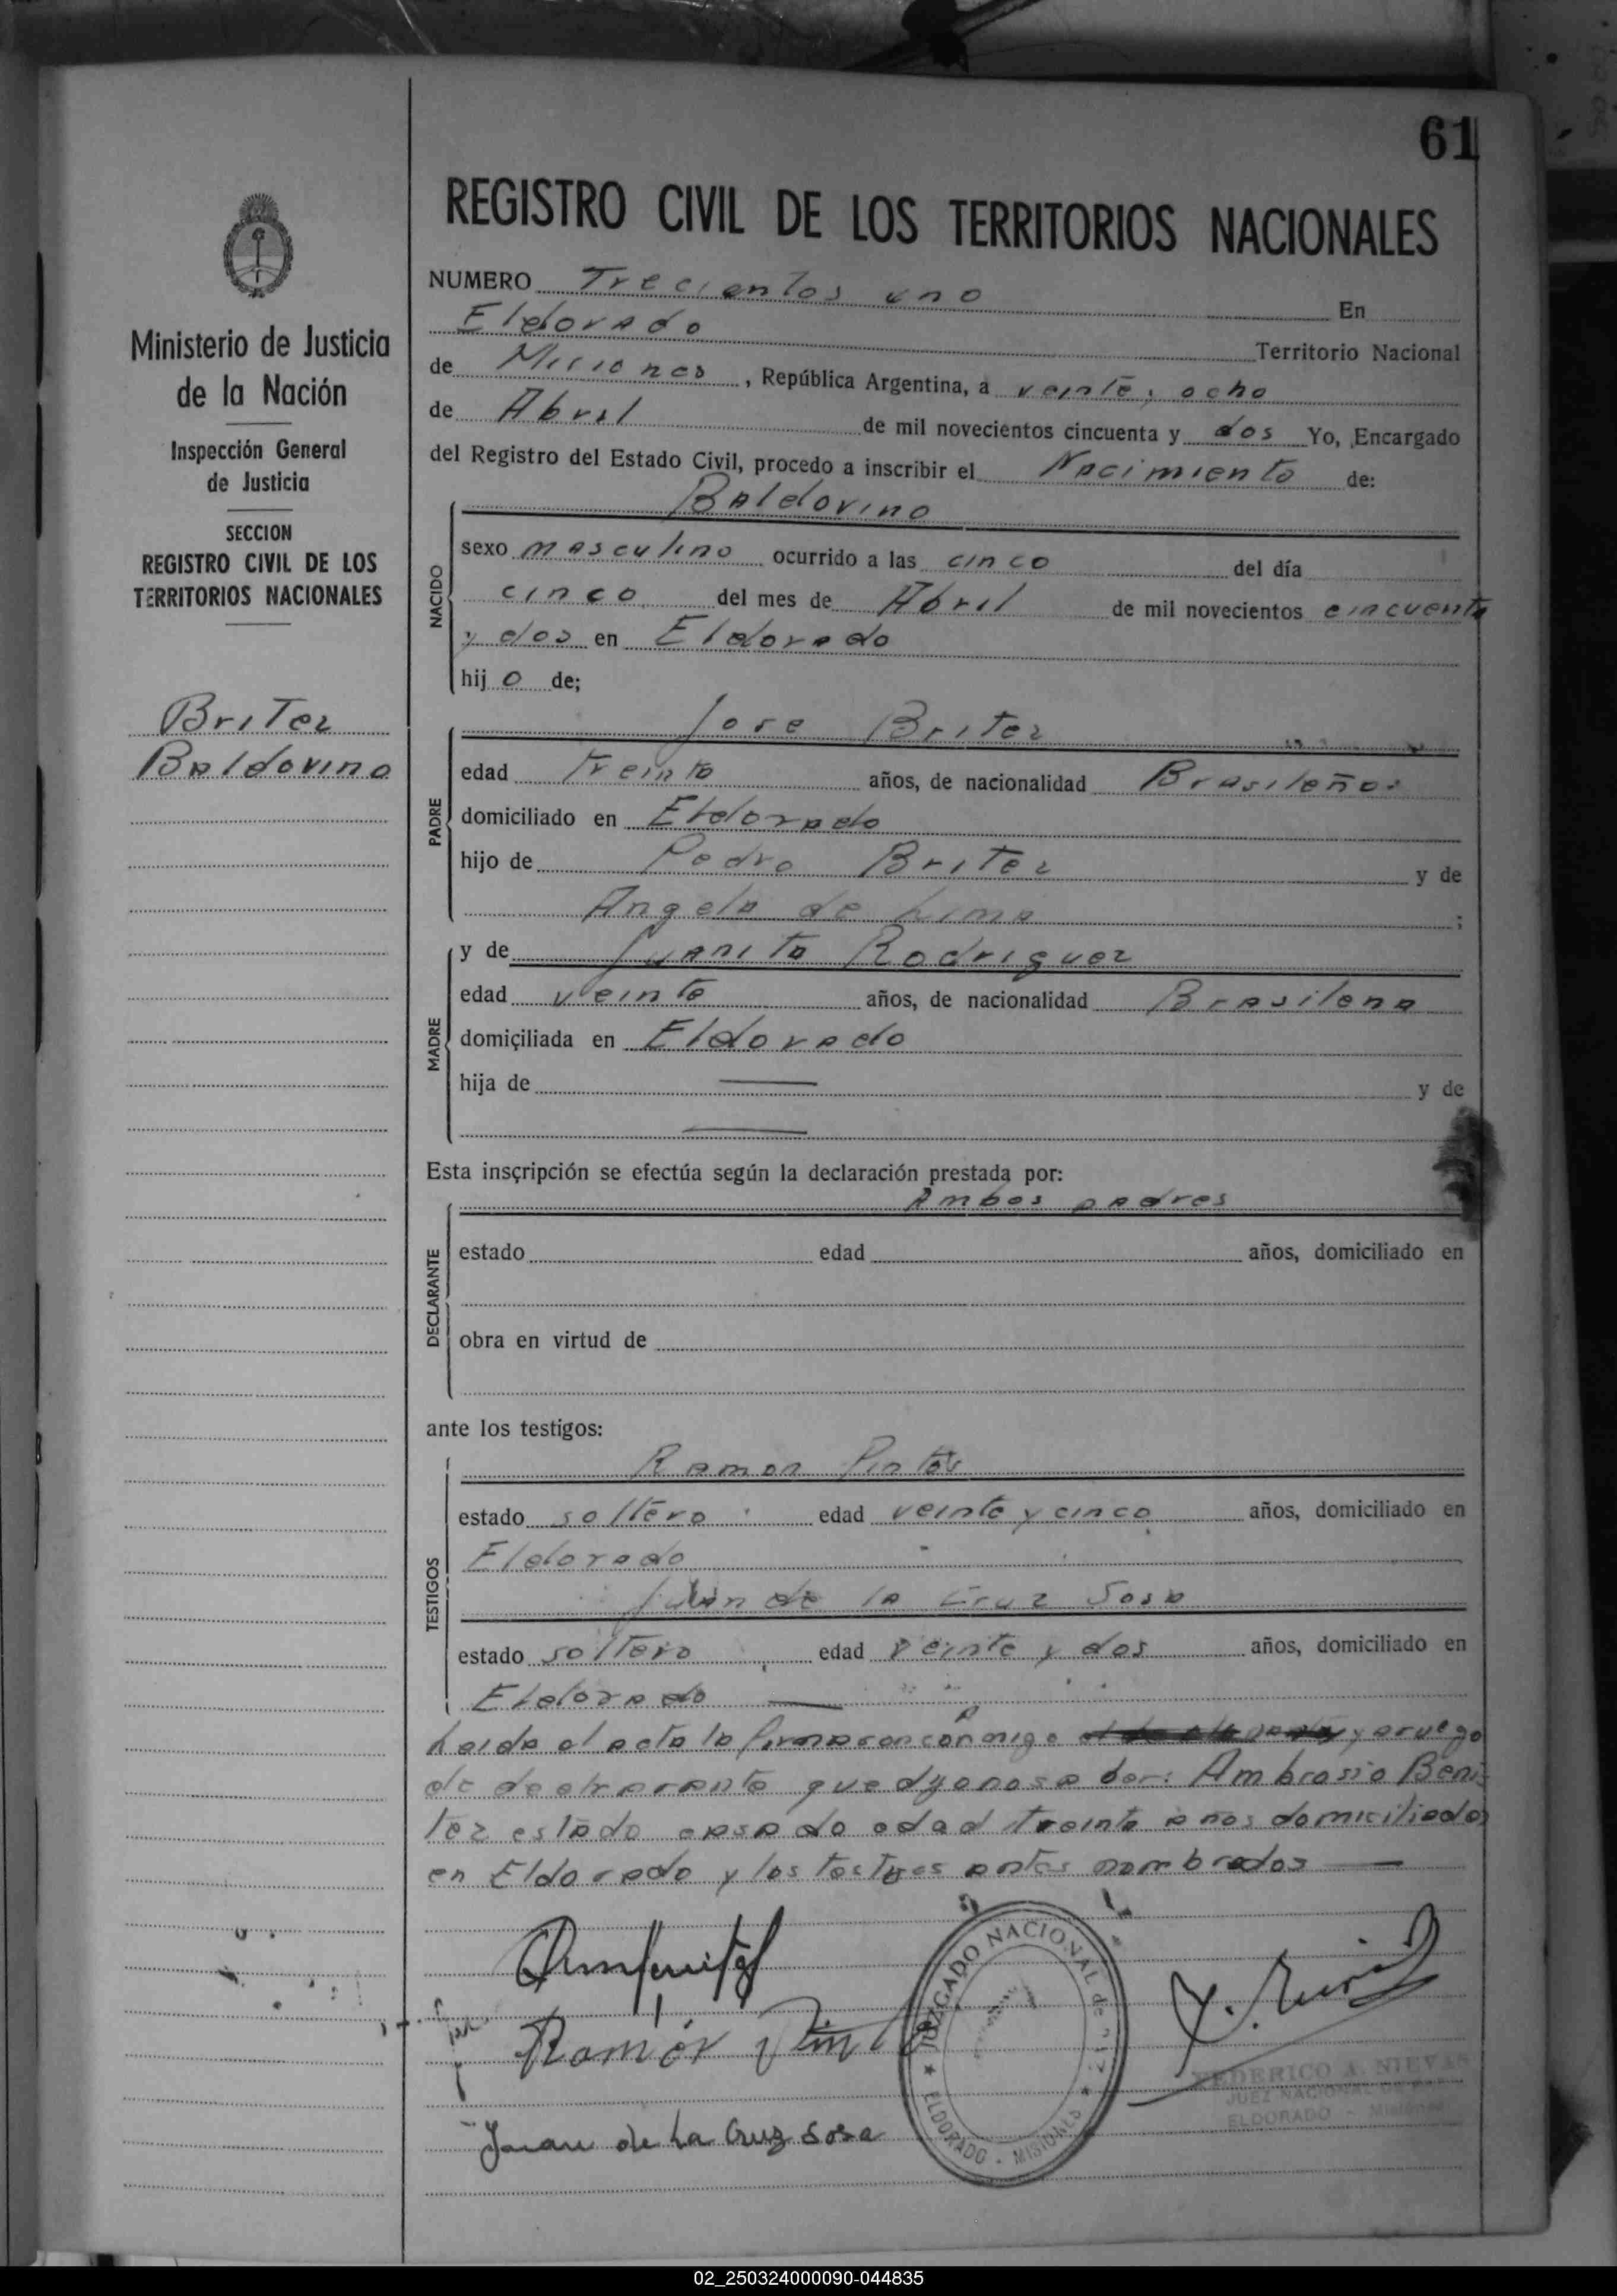 61
REGISTRO CIVIL DE LOS TERRITORIOS NACIONALES
Ministerio de Justicia
de la Nación
Inspección General
de Justicia
SECCION
REGISTRO CIVIL DE LOS
TERRITORIOS NACIONALES
Briter
Baldovino
NUMERO Trecientos uno En
Eldorado Territorio Nacional
de Misiones, República Argentina, a veinte y ocho
de Abril de mil novecientos cincuenta y dos Yo, Encargado
del Registro del Estado Civil, procedo a inscribir el Nacimiento de:
Baldovino
NACIDO
sexo masculino ocurrido a las cinco del día
cinco del mes de Abril de mil novecientos cincuenta
y dos en Eldorado
hijo de;
Jose Briter
PADRE
edad Treinta años, de nacionalidad Brasileño
domiciliado en Eldorado
hijo de Pedro Briter y de
Angela de Lima ;
MADRE
y de Juanita Rodriguez
edad veinte años, de nacionalidad Brasilena
domiciliada en Eldorado
hija de — y de
—
Esta inscripción se efectúa según la declaración prestada por:
Ambos padres
DECLARANTE
estado edad años, domiciliado en
obra en virtud de
ante los testigos:
Ramon Pintos
TESTIGOS
estado soltero edad veinte y cinco años, domiciliado en
Eldorado
Juan de la Cruz Sosa
estado soltero edad veinte y dos años, domiciliado en
Eldorado —
Leida el acta la firmaron conmigo y a ruego
de declarante que Ambrosio Beni-
tez estado casado edad treinta años domiciliado
en Eldorado y los testigos antes nombrados —
Ramón Pinto
Juan de La Cruz Sosa
JUZGADO NACIONAL de PAZ
ELDORADO - MISIONES
FEDERICO A. NIEVAS
JUEZ NACIONAL DE PAZ
ELDORADO - Misiones
02_250324000090-044835